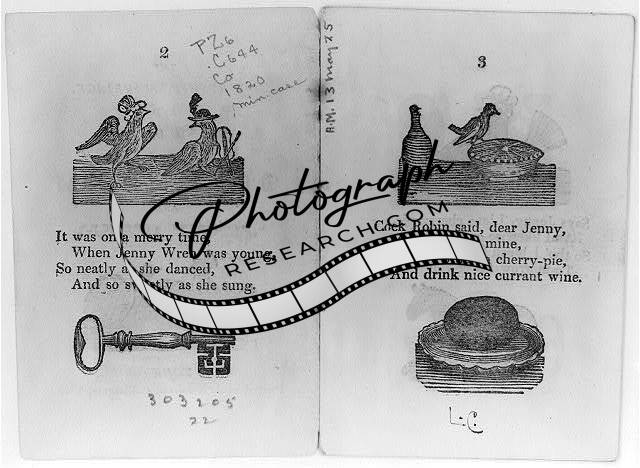 2
PZ6
.C644
Co
1820
min. case
It was on a merry time,
When Jenny Wren was young,
So neatly as she danced,
And so sweetly as she sung.
303205
22
R.M. 13 May 25
3
Cock Robin said, dear Jenny,
mine,
cherry-pie,
And drink nice currant wine.
L.C.
Photograph
RESEARCH.COM